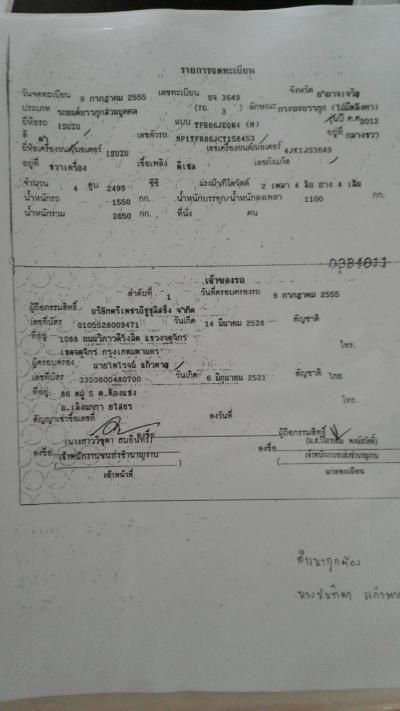 รายการจดทะเบียน
วันจดทะเบียน 9 กรกฎาคม 2555 เลขทะเบียน บจ 3649 จังหวัด อำนาจเจริญ
ประเภท รถยนต์บรรทุกส่วนบุคคล (รย. 3 ) ลักษณะ กระบะบรรทุก (ไม่มีหลังคา)
ยี่ห้อรถ ISUZU แบบ TFR86JEQM4 รุ่นปี ค.ศ 2012
สี เลขตัวรถ MP1TFR86JCT158453 อยู่ที่ กลางขวา
ยี่ห้อเครื่องยนต์/มอเตอร์ ISUZU เลขเครื่องยนต์/มอเตอร์ 4JK1JS3649
อยู่ที่ ขวาเครื่อง เชื้อเพลิง ดีเซล เลขถังแก๊ส
จำนวน 4 สูบ 2499 ซีซี แรงม้า/กิโลวัตต์ 2 เพลา 4 ล้อ ยาง 4 เส้น
น้ำหนักรถ 1550 กก. น้ำหนักบรรทุก/น้ำหนักลงเพลา 1100 กก.
น้ำหนักรวม 2650 กก. ที่นั่ง คน
เจ้าของรถ
ลำดับที่ 1 วันที่ครอบครองรถ 9 กรกฎาคม 2555
ผู้ถือกรรมสิทธิ์ บริษัทตรีเพชรอีซูซุลิสซิ่ง จำกัด
เลขที่บัตร 0105528009471 วันเกิด 14 มีนาคม 2528 สัญชาติ
ที่อยู่ 1088 ถนนวิภาวดีรังสิต แขวงจตุจักร
เขตจตุจักร กรุงเทพมหานคร โทร.
ผู้ครอบครอง นายไพโรจน์
เลขที่บัตร 3350800480700 วันเกิด 6 มิถุนายน 2521 สัญชาติ ไทย
ที่อยู่ 86 หมู่ 5 โทร.
อ.เลิงนกทา ยโสธร
สัญญาเช่าซื้อเลขที่ ลงวันที่
ผู้ถือกรรมสิทธิ์
ลงชื่อ เจ้าพนักงานขนส่งชำนาญงาน ลงชื่อ เจ้าพนักงานขนส่งชำนาญงาน
เจ้าหน้าที่ นายทะเบียน
สำเนาถูกต้อง